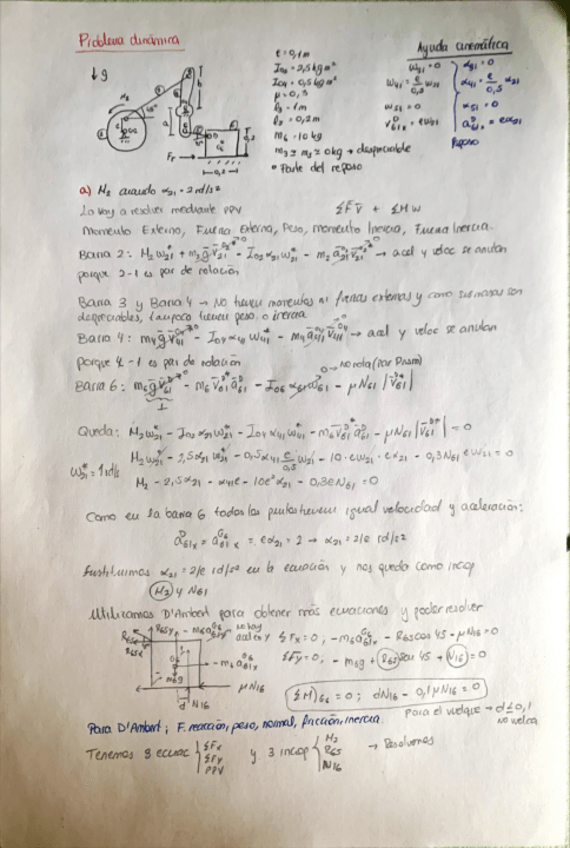 Problema dinámica
Ayuda cinemática
e = 0,1m
I02 = 2,5 kg m²
I04 = 0,5 kg m²
μ = 0,3
m6 = 10 kg
m3 ≈ m5 ≈ 0 kg → despreciable
• Parte del reposo
ω61 = 0
ω41 = e/0,5 ω21
ω51 = 0
vD61x = eω21
α61 = 0
α41 = e/0,5 α21
α51 = 0
aD61x = eα21
Reposo
↓g
Fr
a) M2 cuando α21 = 2 rd/s²
Lo voy a resolver mediante PPV ΣF̄ v̄ + ΣM ω
Momento Externo, Fuerza Externa, Peso, Momento Inercia, Fuerza Inercia.
Barra 2: M2 ω21* + m2 ḡ v̄21 - I02 α21 ω21* - m2 ā21 v̄21 → acel y veloc se anulan
porque 2-1 es par de rotación
Barra 3 y Barra 4 → No tienen momentos ni fuerzas externas y como sus masas son
despreciables, tampoco tienen peso, o inercia
Barra 4: m4 ḡ v̄41 - I04 α41 ω41* - m4 ā41 v̄41 → acel y veloc se anulan
porque 4-1 es par de rotación
Barra 6: m6 ḡ v̄61 - m6 v̄61 ā61 - I06 α61 ω61 - μN61 |v̄61|
0 → no rota (Par Prism)
Queda: M2 ω21* - I02 α21 ω21* - I04 α41 ω41* - m6 v̄61 ā61 - μN61 |v̄61| = 0
ω21* = 1 rd/s
M2 ω21* - 2,5α21 ω21* - 0,5α41 e/0,5 ω21 - 10·eω21·eα21 - 0,3N61 eω21 = 0
M2 - 2,5α21 - α41e - 10e²α21 - 0,3eN61 = 0
Como en la barra 6 todos los puntos tienen igual velocidad y aceleración:
aD61x = aG661x = eα21 = 2 → α21 = 2/e rd/s²
Sustituimos α21 = 2/e rd/s² en la ecuación y nos queda como incog
M2 y N61
Utilizamos D'Ambert para obtener más ecuaciones y poder resolver
R65y
no hay
acel en y
- m6 aG661x
m6g
μN16
d N16
ΣFx = 0; -m6aG661x - R65 cos 45 - μN16 = 0
ΣFy = 0; - m6g + R65 sen 45 + N16 = 0
ΣM)G6 = 0; dN16 - 0,1μN16 = 0
Para el vuelque → d ≤ 0,1
no vuelca
Para D'Ambert; F. reacción, peso, normal, fricción, inercia.
Tenemos 3 ecuac { ΣFx ΣFy PPV y 3 incog { M2 R65 N16 → Resolvemos